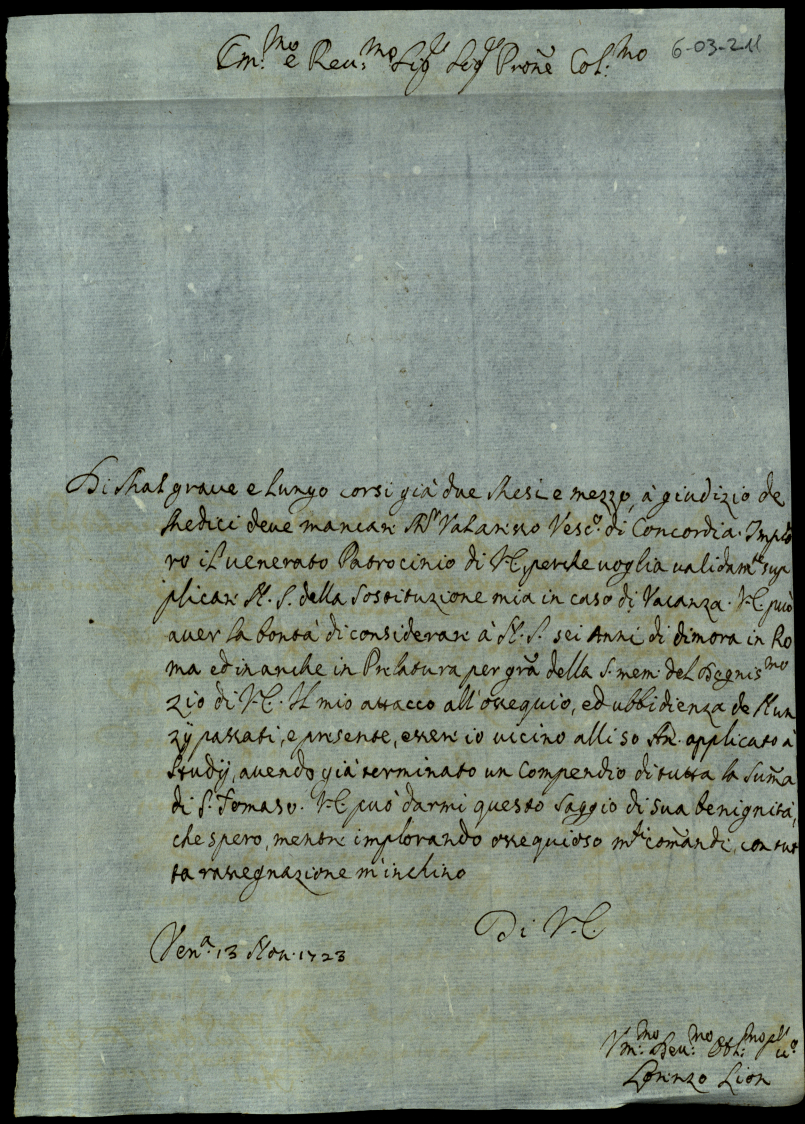 Em.mo e Reu.mo Sig.r Sig.r Prone Col.mo 6-03-2-11
Di Mal graue e lungo corsi già due Mesi e mezzo, à giudizio de
Medici deue mancare M.r Valaresso Vesc.o di Concordia. Implo
ro il uenerato Patrocinio di V.E. perche uoglia validam.te sup
plicare N. S. della sostituzione mia in caso di Vacanza. V.E. può
auer la bontà di considerare à N. S. sei Anni di dimora in Ro
ma ed in anche in Prelatura per gra della S. mem. del Degnis.mo
Zio di V.E. Il mio attacco all'ossequio, ed ubbidienza de Nun
zÿ passati, e presente, essere io uicino alli 50 An. applicato à
Studÿ, auendo già terminato un Compendio di tutta la Suma
di S. Tomaso. V.E. può darmi questo saggio di sua benignità,
che spero, mentre implorando ossequioso m.ti comandi, con tut
ta rassegnazione m'inchino
Di V.E.
Ven.a 13 Nou. 1723
Vm.mo Deu.mo Obl.mo
Lorenzo Lion